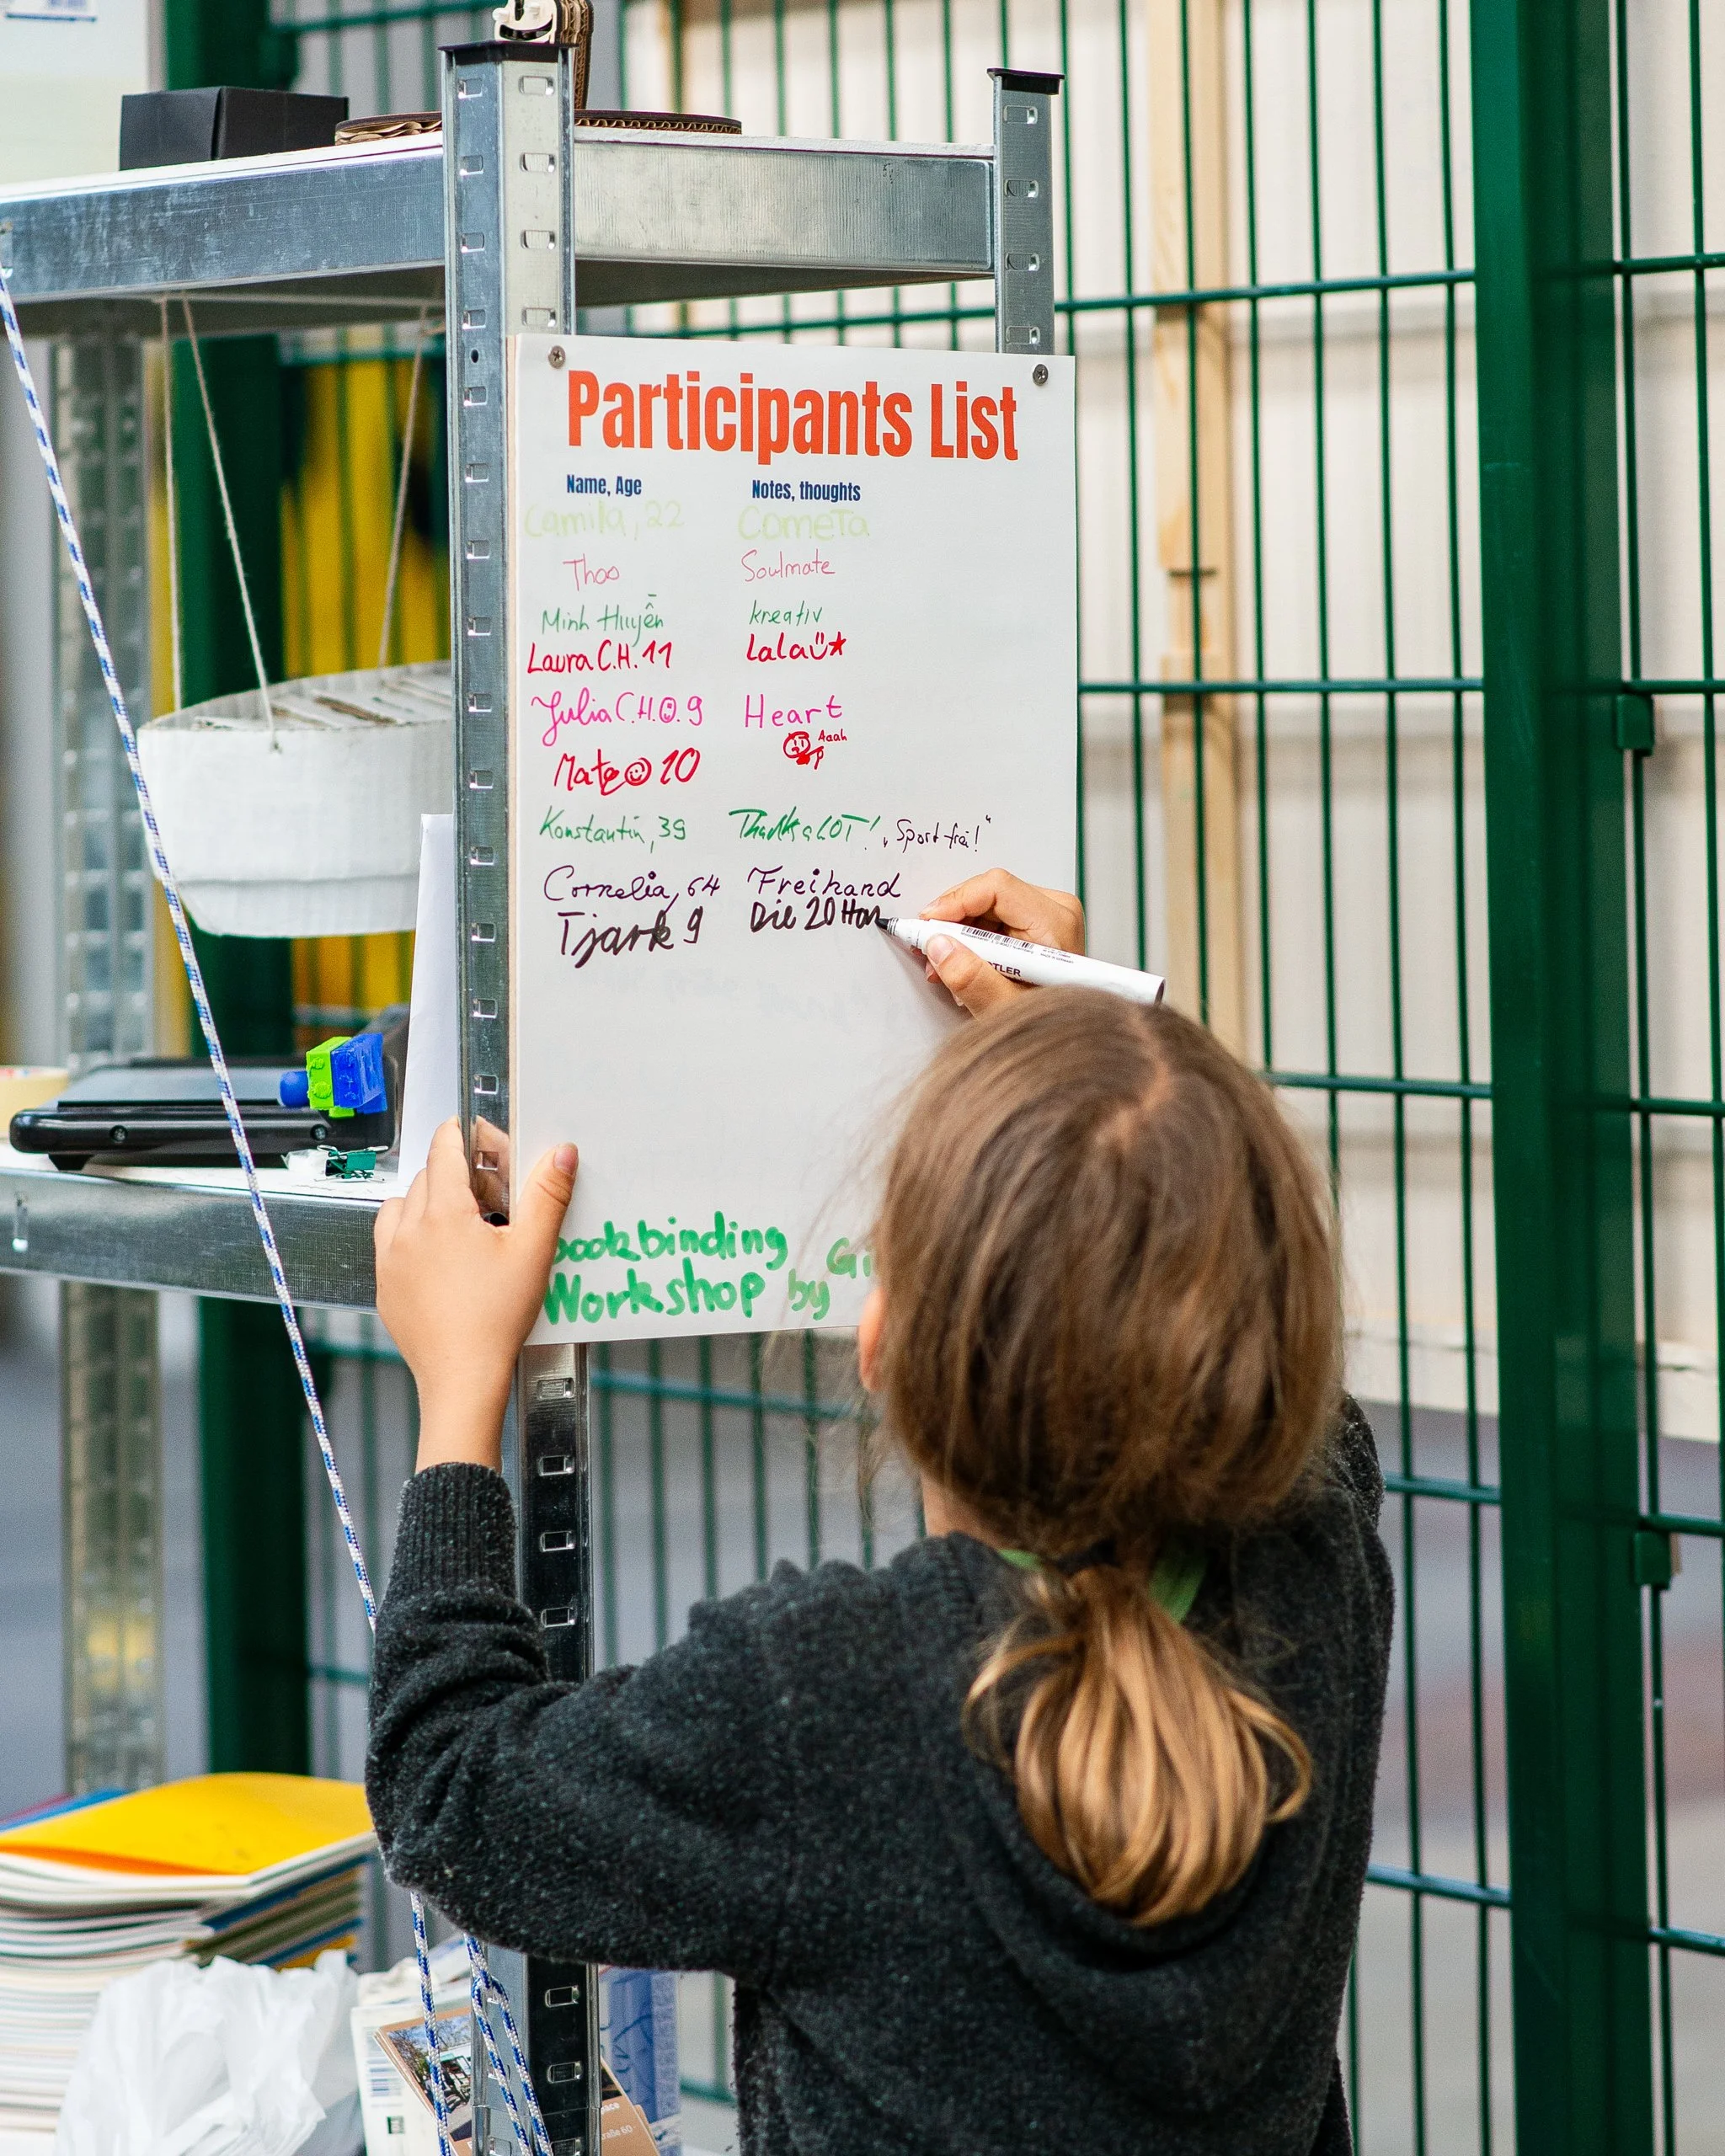 Participants List
Name, Age Notes, thoughts
Camila, 22 Cometa
Thao Soulmate
Minh Huyền kreativ
Laura C.H. 11 Lala
Julia C.H. 9 Heart
Aaah
Mate 10
Konstantin, 39 Thanks a LOT! „Sport frei!“
Cornelia, 64 Freihand
Tjark 9 Die 20
bookbinding
Workshop by